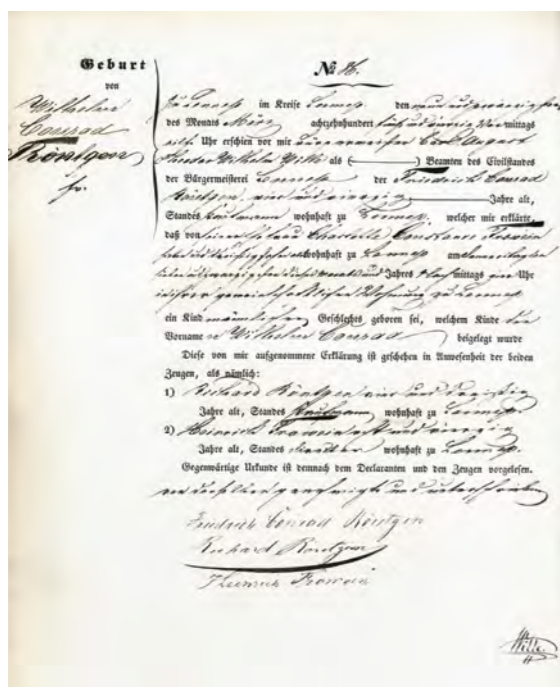 Geburt
von
Wilhelm
Conrad
Röntgen
№ 86.
Zu Lennep im Kreise Lennep den neun und zwanzigsten
des Monats März achtzehnhundert fünf und vierzig Vormittags
eilf Uhr erschien vor mir Bürgermeister Carl August
Theodor Wilhelm Wille als ( ) Beamten des Civilstandes
der Bürgermeisterei Lennep der Friedrich Conrad
Röntgen, vier und vierzig Jahre alt,
Standes Kaufmann wohnhaft zu Lennep, welcher mir erklärte,
daß von seiner Frau Charlotte Constanze Frowein
wohnhaft zu Lennep am
sieben und zwanzigsten dieses Monats und Jahres Nachmittags vier Uhr
in ihrer gemeinschaftlichen Wohnung zu Lennep
ein Kind männlichen Geschlechts geboren sei, welchem Kinde die
Vorname n Wilhelm Conrad beigelegt wurde
Diese von mir aufgenommene Erklärung ist geschehen in Anwesenheit der beiden
Zeugen, als nämlich:
1) Richard Röntgen vier und dreißig
Jahre alt, Standes Kaufmann, wohnhaft zu Lennep.
2) Heinrich Frowein und vierzig
Jahre alt, Standes Rentner wohnhaft zu Lennep.
Gegenwärtige Urkunde ist demnach dem Declaranten und den Zeugen vorgelesen.
von denselben genehmigt und unterschrieben
Friedrich Conrad Röntgen
Richard Röntgen
Heinrich Frowein
Wille